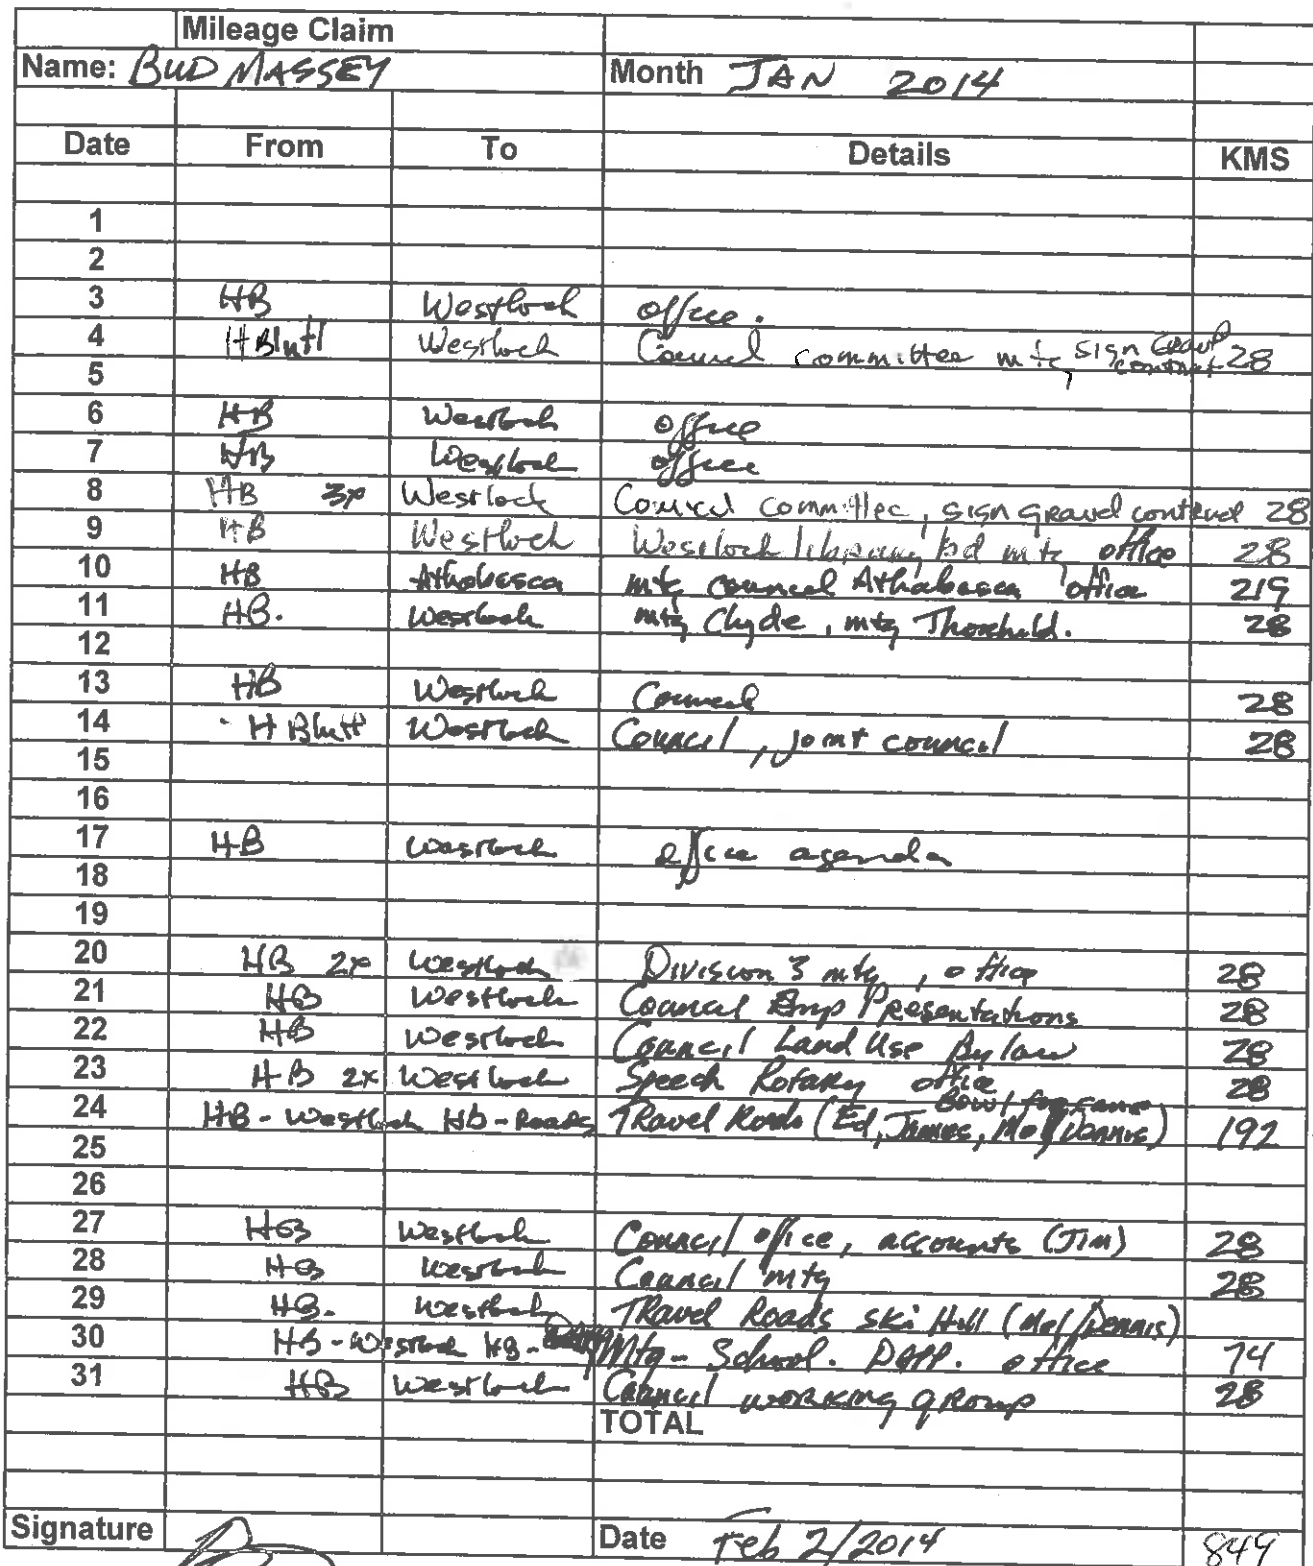 Mileage Claim
Name: BUD MASSEY Month JAN 2014
Date From To Details KMS
1
2
3 HB Westlock office.
4 H Blutt Westlock Council committee mtg sign Gravel contract 28
5
6 HB Westlock office
7 HB Westlock office
8 HB 3x Westlock Council committee, sign gravel contract 28
9 HB Westlock Westlock library bd mtg office 28
10 HB Athabasca mtg council Athabasca office 219
11 HB. Westlock mtg Clyde, mtg Thorehild. 28
12
13 HB Westlock Council 28
14 H Blutt Westlock Council, joint council 28
15
16
17 HB Westlock office agenda
18
19
20 HB 2x Westlock Division 3 mtg, office 28
21 HB Westlock Council Emp Presentations 28
22 HB Westlock Council Land Use Bylaw 28
23 HB 2x Westlock Speech Rotary office 28
24 HB - Westlock Hb - Roads Travel Roads (Ed, James, Mel/Dennis) Bowl for 192
25
26
27 HB Westlock Council office, accounts (Jim) 28
28 HB Westlock Council mtg 28
29 HB. Westlock Travel Roads Ski Hill (Mel/Dennis)
30 HB - Westlock HB - Mtg - School. office 74
31 HB Westlock Council working group 28
TOTAL
Signature Date Feb 2/2014 849